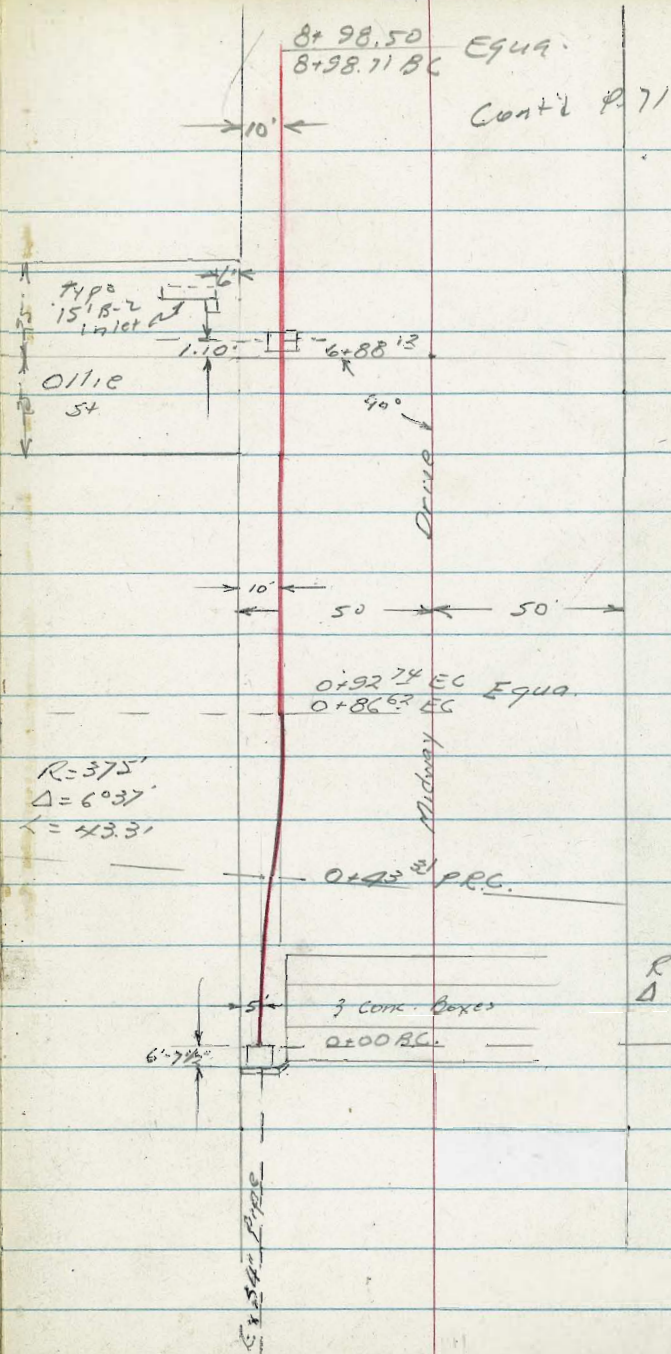 8+98.50 Equa.
8+98.71 BC
Cont'd P. 71
10'
6'
Type
15' B-2
Inlet
1.10'
6+88 13
Ollie
St
90°
Drive
10'
50 50'
0+92 74 EC Equa.
0+86 62 EC
Midway
R=375'
Δ=6°37'
L=43.31
0+43 31 P.R.C.
R
Δ
5'
3 Conc. Boxes
0+00 B.C.
6'-7½"
Ex. 54" Pipe